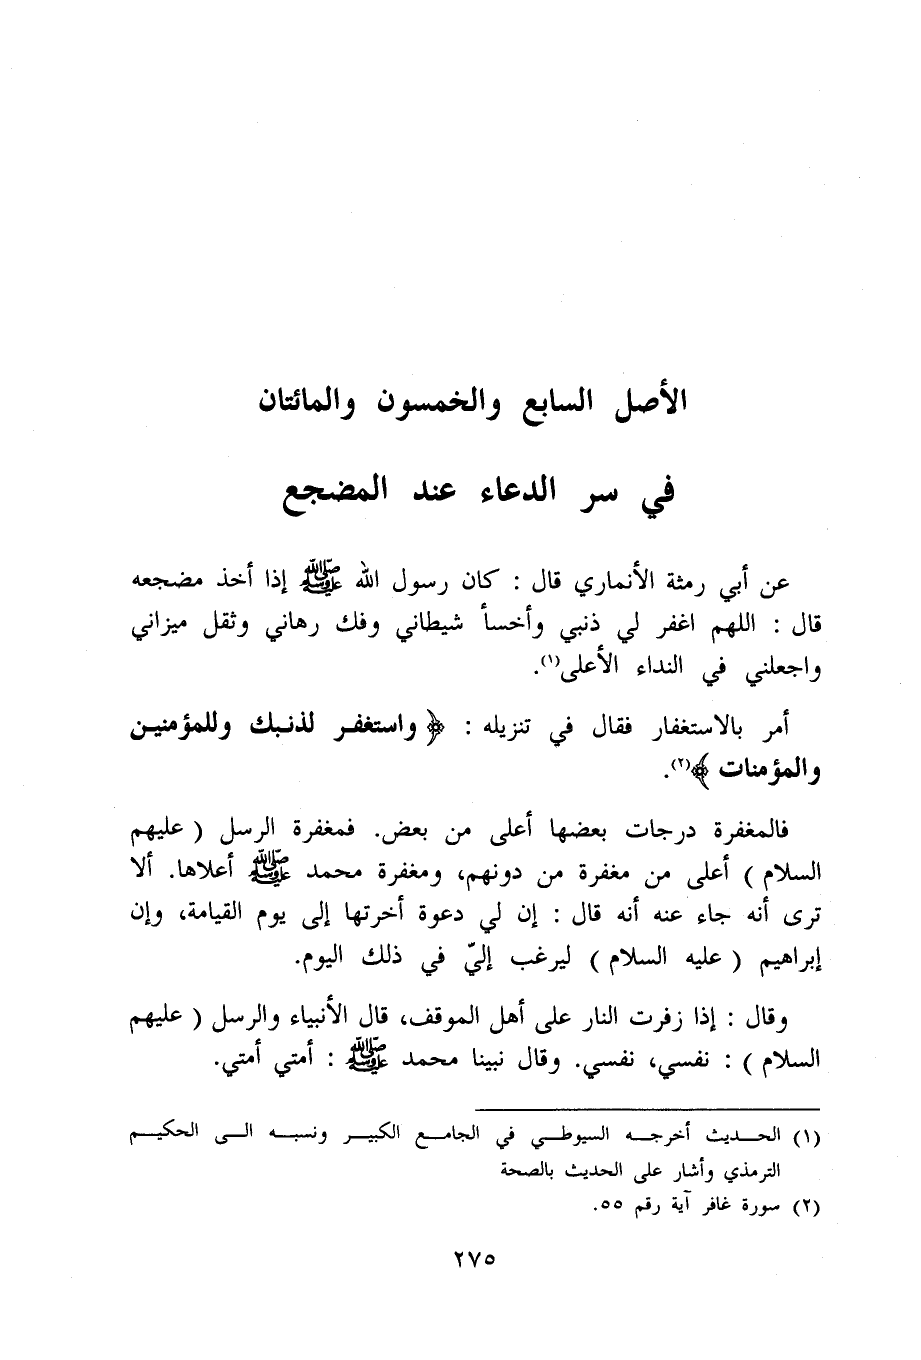 الأصل السابع والخمسون والمائتان
في سر الدعاء عند المضجع
عن أبي رمثة الأنماري قال : كان رسول الله ﷺ إذا أخذ مضجعه
قال : اللهم اغفر لي ذنبي وأخسأ شيطاني وفك رهاني وثقل ميزاني
واجعلني في النداء الأعلى(١).
أمر بالاستغفار فقال في تنزيله : ﴿ واستغفر لذنبك وللمؤمنين
والمؤمنات ﴾(٢).
فالمغفرة درجات بعضها أعلى من بعض. فمغفرة الرسل ( عليهم
السلام ) أعلى من مغفرة من دونهم، ومغفرة محمد ﷺ أعلاها. ألا
ترى أنه جاء عنه أنه قال : إن لي دعوة أخرتها إلى يوم القيامة، وإن
إبراهيم ( عليه السلام ) ليرغب إليّ في ذلك اليوم.
وقال : إذا زفرت النار على أهل الموقف، قال الأنبياء والرسل ( عليهم
السلام ) : نفسي، نفسي. وقال نبينا محمد ﷺ : أمتي أمتي.
(١) الحديث أخرجه السيوطي في الجامع الكبير ونسبه الى الحكيم
الترمذي وأشار على الحديث بالصحة
(٢) سورة غافر آية رقم ٥٥.
٢٧٥